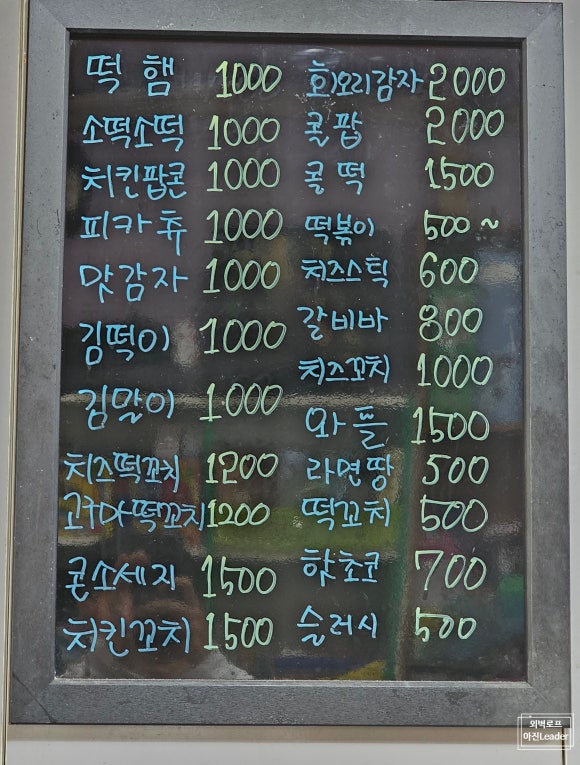 떡햄 1000
소떡소떡 1000
치킨팝콘 1000
피카츄 1000
맛감자 1000
김떡이 1000
김말이 1000
치즈떡꼬치 1200
고구마떡꼬치 1200
콘소세지 1500
치킨꼬치 1500
회오리감자 2000
콜팝 2000
콜떡 1500
떡볶이 500~
치즈스틱 600
갈비바 800
치즈꼬치 1000
와플 1500
라면땅 500
떡꼬치 500
핫초코 700
슬러시 500
외벽로프
아진Leader